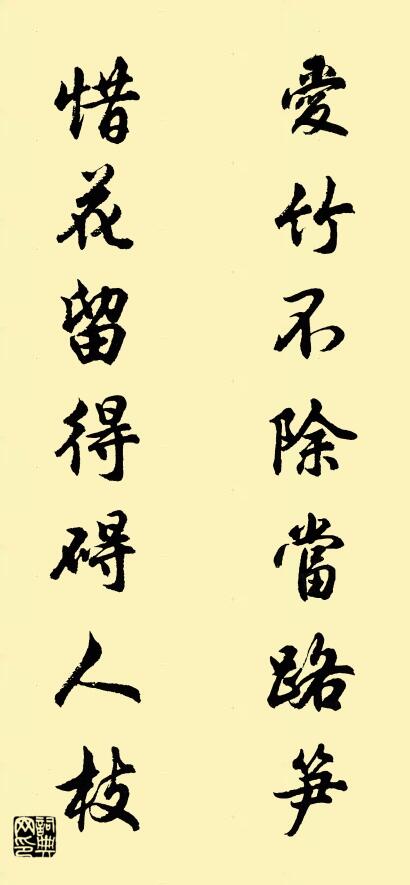 愛竹不除當路笋
惜花留得碍人枝
詞典网印